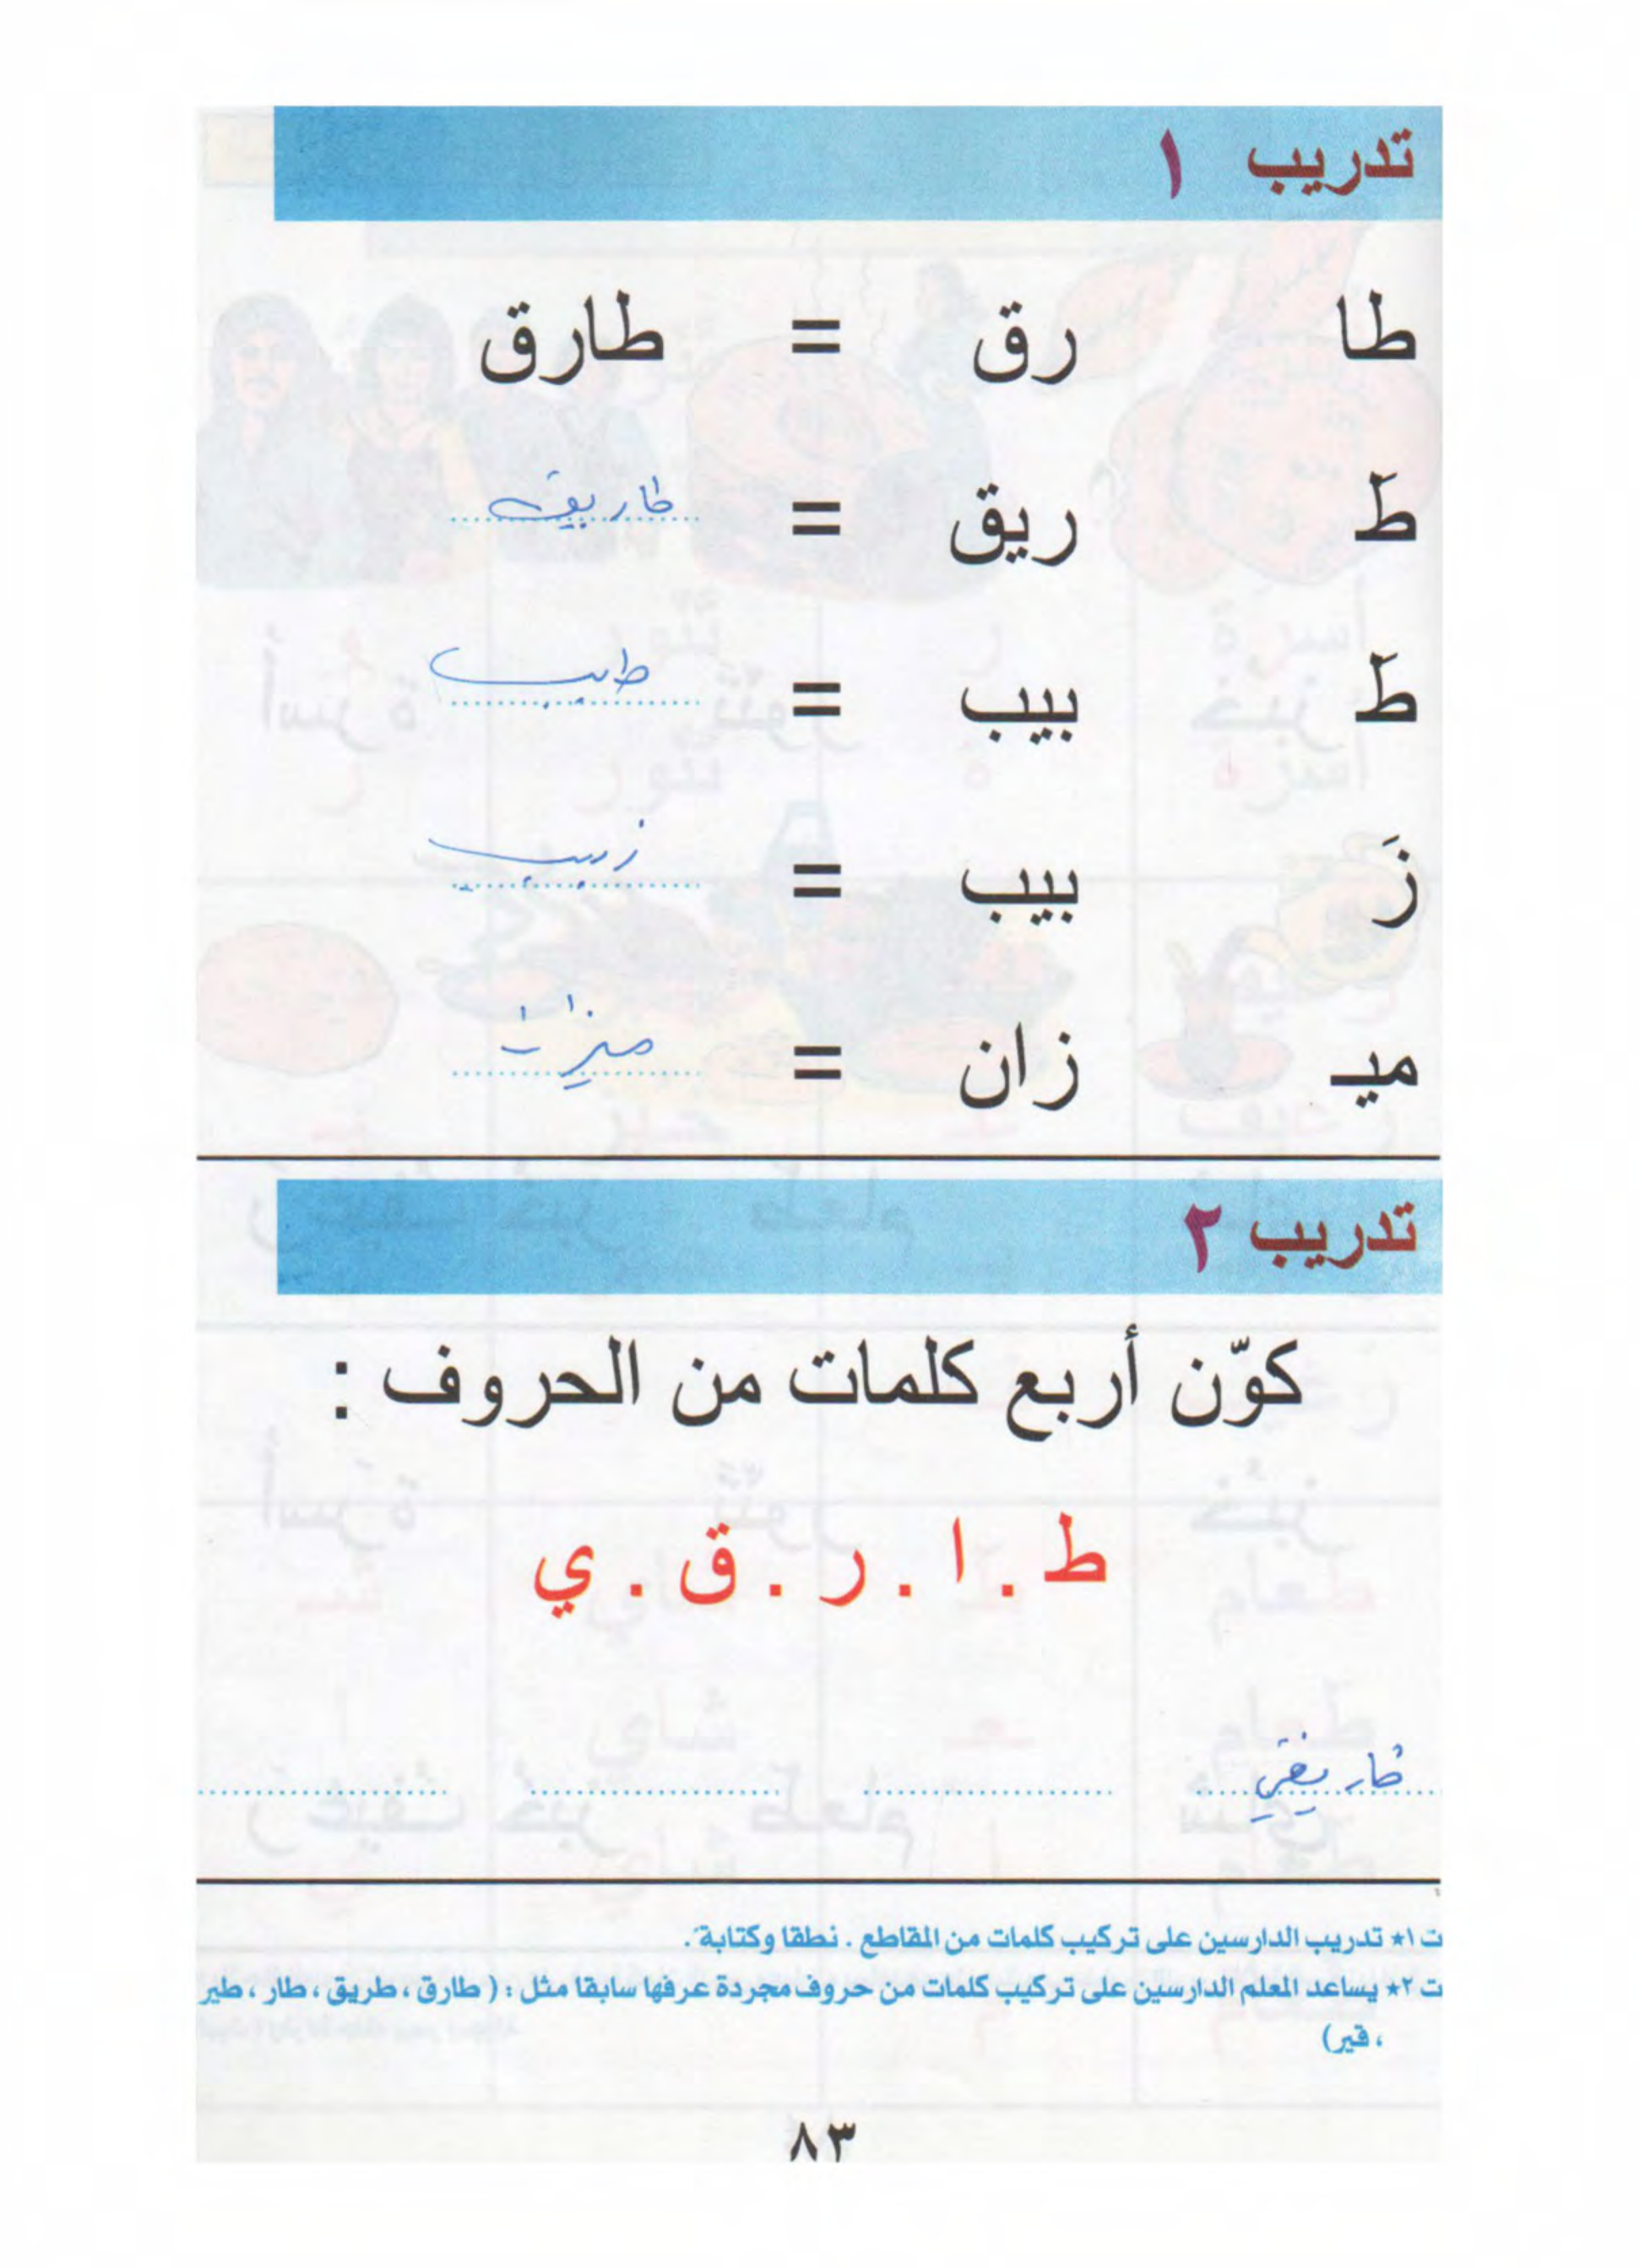 تدريب ١
طا رق = طارق
طَ ريق = طاريق
طَ بيب = طبيب
زَ بيب = زبيب
ميـ زان = ميزان
تدريب ٢
كوّن أربع كلمات من الحروف :
ط . ا . ر . ق . ي
ت ١* تدريب الدارسين على تركيب كلمات من المقاطع . نطقا وكتابة ً.
ت ٢* يساعد المعلم الدارسين على تركيب كلمات من حروف مجردة عرفها سابقا مثل : ( طارق ، طريق ، طار ، طير
، قير)
٨٣